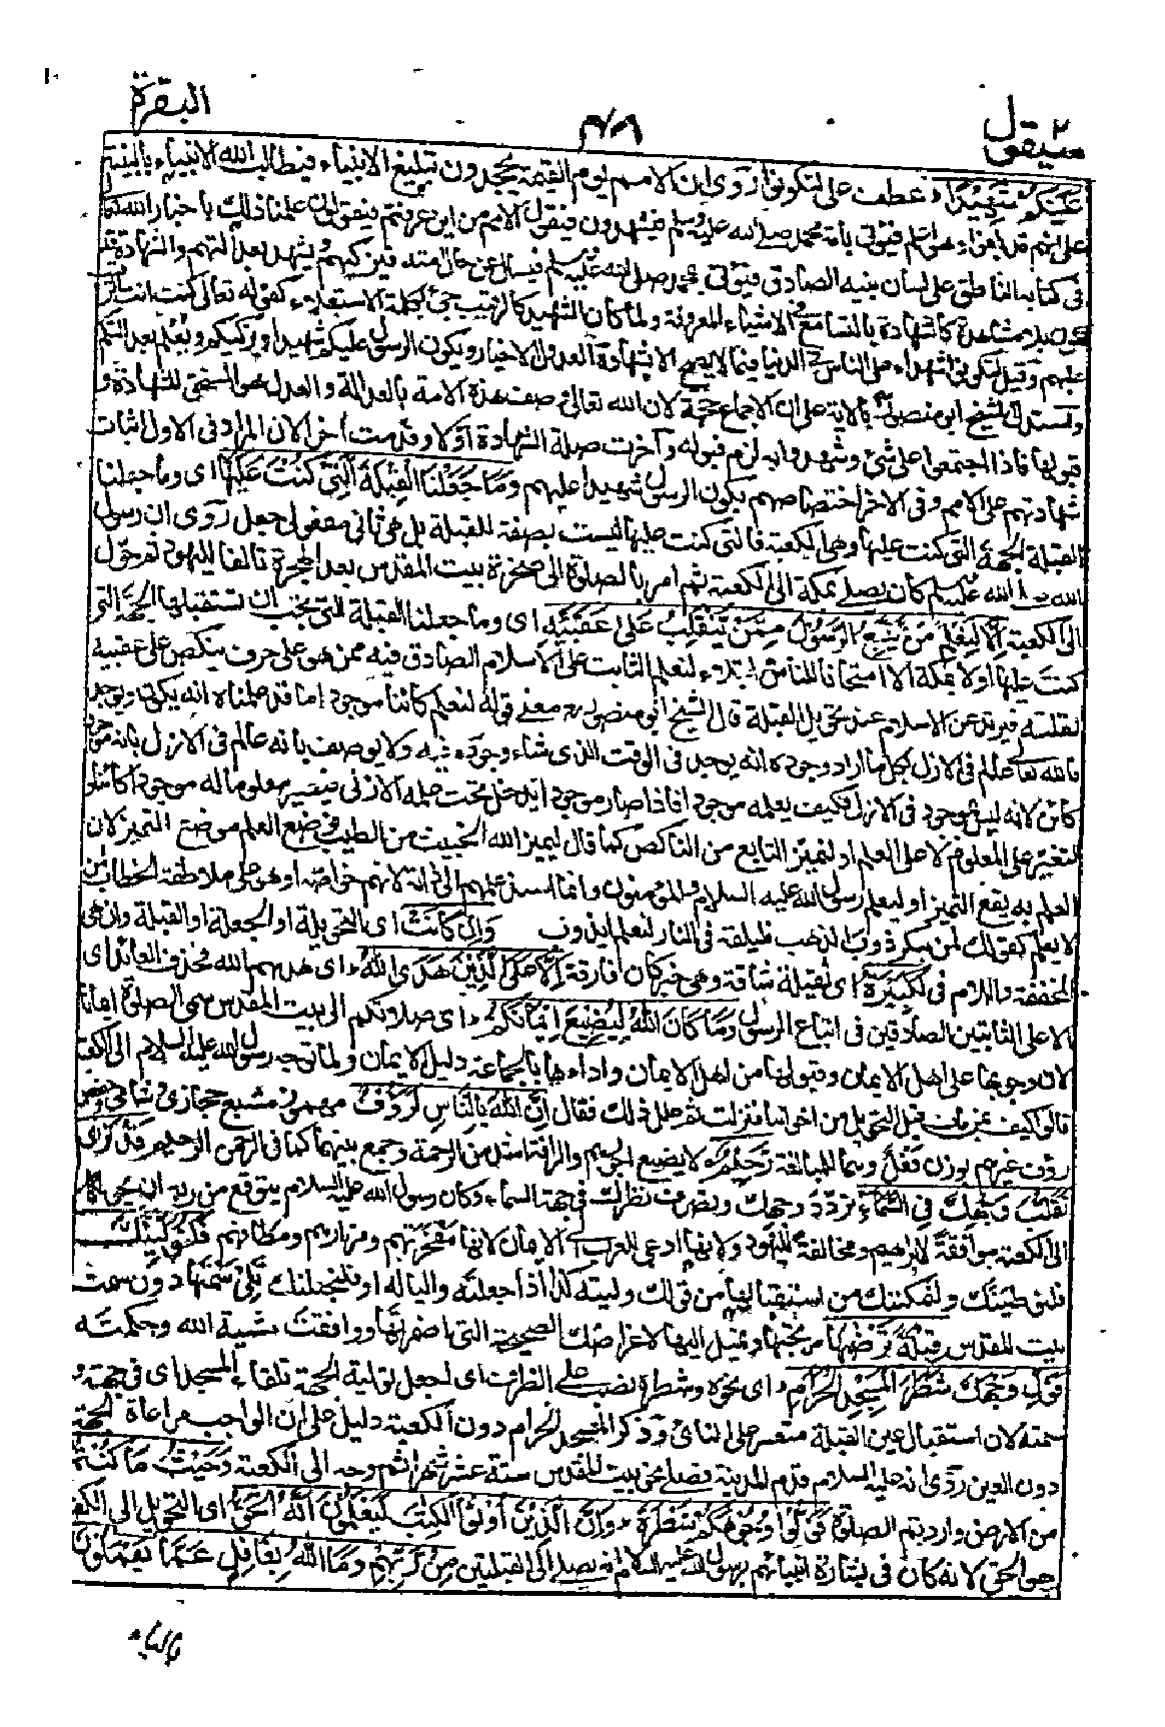 سيقول ٢
٤٨
البقرة
عَلَيْكُمْ شَهِيْدًا ، عطف على لتكونوا روى ان الامم يوم القيمة يجحدون تبليغ الانبياء فيطالب الله الانبياء بالبينة
على انهم قد بلغوا وهو اعلم فيؤتى بامة محمد صلى الله عليه وسلم فيشهدون فيقول الامم من اين عرفتم فيقولون علمنا ذلك باخبار الله تعالى
فى كتابه الناطق على لسان نبيه الصادق فيؤتى بمحمد صلى الله عليه وسلم فيسأل عن حال امته فيزكيهم ويشهد بعدالتهم والشهادة قد
مشاهدة كالشهادة بالتسامع فى الاشياء المعروفة ولما كان الشهيد كالرقيب جئ بكلمة الاستعلاء كقوله تعالى كنت انت الرقيب
عليهم وقيل لتكونوا شهداء على الناس فى الدنيا فيما لا يصح الا بشهادة العدول الاخيار ويكون الرسول عليكم شهيدا ويزكيكم ويعلم بعدالتكم
واستدل الشيخ ابو منصور بالاية على ان الاجماع حجة لان الله تعالى وصف هذه الامة بالعدالة والعدل هو المستحق للشهادة و
قبولها فاذا اجتمعوا على شئ وشهدوا به لزم قبوله وأخرت صلة الشهادة اولا وقدمت أخرا لان المراد فى الاول اثبات
شهادتهم على الامم وفى الاخر اختصاصهم بكون الرسول شهيدا عليهم وَمَا جَعَلْنَا الْقِبْلَةَ الَّتِي كُنْتَ عَلَيْهَا اى وما جعلنا
القبلة الجهة التى كنت عليها وهى الكعبة فالتى كنت عليها ليست بصفة للقبلة بل هى ثانى مفعولى جعل روى ان رسول
الله صلى الله عليه وسلم كان يصلى بمكة الى الكعبة ثم امر بالصلوة الى صخرة بيت المقدس بعد الهجرة تالفا لليهود ثم حول
الى الكعبة اِلَّا لِنَعْلَمَ مَنْ يَتَّبِعُ الرَّسُوْلَ مِمَّنْ يَنْقَلِبُ عَلٰى عَقِبَيْهِ اى وما جعلنا القبلة التى تحب ان تستقبلها الجهة التى
كنت عليها اولا بمكة الا امتحانا للناس وابتلاء لنعلم الثابت على الاسلام الصادق فيه ممن هو على حرف ينكص على عقبيه
لقلقه فيرتد عن الاسلام عند تحويل القبلة قال الشيخ ابو منصور معنى قوله لنعلم كائنا موجودا ما قد علمناه انه يكون ويوجد
فالله تعالى عالم فى الازل بكل ما اراد وجوده انه يوجد فى الوقت الذى شاء وجوده فيه ولا يوصف بانه عالم فى الازل بانه موجود
كائن لانه ليس بموجود فى الازل فكيف يعلمه موجودا فاذا صار موجودا يدخل تحت علمه الازلى فيصير معلوما له موجودا كائنا و
التغير على المعلوم لا على العلم او لنميز التابع من الناكص كما قال ليميز الله الخبيث من الطيب فوضع العلم موضع التميز لان
العلم به يقع التميز او ليعلم رسول الله عليه السلام والمؤمنون وانما اسند علمهم الى ذاته لانهم خواصه او هو على ملاطفة الخطاب لمن
لا يعلم كقولك لمن ينكر ذوب الذهب فلنلقه فى النار لنعلم ايذوب وَاِنْ كَانَتْ اى التحويلة او الجعلة او القبلة وان هى
المخففة واللام فى لَكَبِيْرَةً اى ثقيلة شاقة وهى خبر كان اللام فارقة اِلَّا عَلَى الَّذِيْنَ هَدَى اللّٰهُ ، اى هديهم الله فحذف العائد اى
الا على الثابتين الصادقين فى اتباع الرسول وَمَا كَانَ اللّٰهُ لِيُضِيْعَ اِيْمَانَكُمْ ، اى صلاتكم الى بيت المقدس سمى الصلوة ايمانا
لان وجوبها على اهل الايمان وقبولها من اهل الايمان واداءها بالجماعة دليل الايمان ولما توجه رسول الله عليه السلام الى الكعبة
قالوا كيف بمن مات قبل التحويل من اخواننا فنزلت ثم علل ذلك فقال اِنَّ اللّٰهَ بِالنَّاسِ لَرَءُوْفٌ مهموز مشبع حجازى شامى وحفص
رؤف غيرهم بوزن فعل وهما للمبالغة رَّحِيْمٌ ، لا يضيع اجورهم والرافة اشد من الرحمة وجمع بينهما كما فى الرحمن الرحيم قَدْ نَرٰى
تَقَلُّبَ وَجْهِكَ فِى السَّمَآءِ تردد وجهك وتصرف نظرك فى جهة السماء وكان رسول الله عليه السلام يتوقع من ربه ان يحوله
الى الكعبة موافقة لابراهيم ومخالفة لليهود ولانها ادعى للعرب الى الايمان لانها مفخرتهم ومزارهم ومطافهم فَلَنُوَلِّيَنَّكَ
فلنعطينك ولنمكننك من استقبالها من قولك وليته كذا اذا جعلته واليا له او فلنجعلنك تلى سمتها دون سمت
بيت المقدس قِبْلَةً تَرْضٰىهَا تحبها وتميل اليها لاغراضك الصحيحة التى اضمرتها ووافقت مشية الله وحكمته
فَوَلِّ وَجْهَكَ شَطْرَ الْمَسْجِدِ الْحَرَامِ ، اى نحوه وشطره نصب على الظرف اى اجعل تولية الوجه تلقاء المسجد اى فى جهته و
سمته لان استقبال عين القبلة متعسر على النائى وذكر المسجد الحرام دون الكعبة دليل على ان الواجب مراعاة الجهة
دون العين روى انه عليه السلام قدم المدينة فصلى نحو بيت المقدس ستة عشر شهرا ثم وجه الى الكعبة وَحَيْثُ مَا كُنْتُمْ
من الارض واردتم الصلوة فَوَلُّوْا وُجُوْهَكُمْ شَطْرَهٗ ، وَاِنَّ الَّذِيْنَ اُوْتُوا الْكِتٰبَ لَيَعْلَمُوْنَ اَنَّهُ الْحَقُّ اى التحويل الى الكعبة
هو الحق لانه كان فى بشارة انبيائهم برسول الله عليه السلام انه يصلى الى القبلتين مِنْ رَّبِّهِمْ وَمَا اللّٰهُ بِغَافِلٍ عَمَّا يَعْمَلُوْنَ